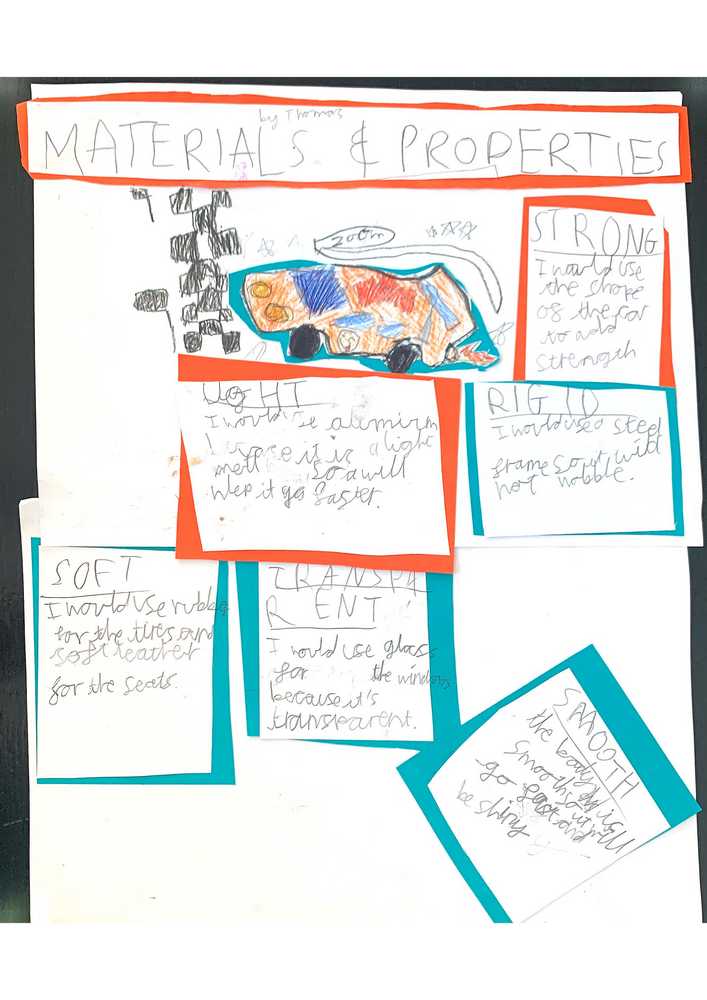 by Thomas
MATERIALS & PROPERTIES
zoom
STRONG
I would use
the shape
of the car
to add
strength
LIGHT
I would use aluminum
because it is a light
metl so a will
help it go faster.
RIGID
I would used steel
frame so it will
not wobble.
SOFT
I would use rubber
for the tires and
soft leather
for the seats.
TRANSPA
RENT
I would use glass
for the windows
because it's
transparent.
SMOOTH
the body is
smooth so it will
go fast and
be shiny